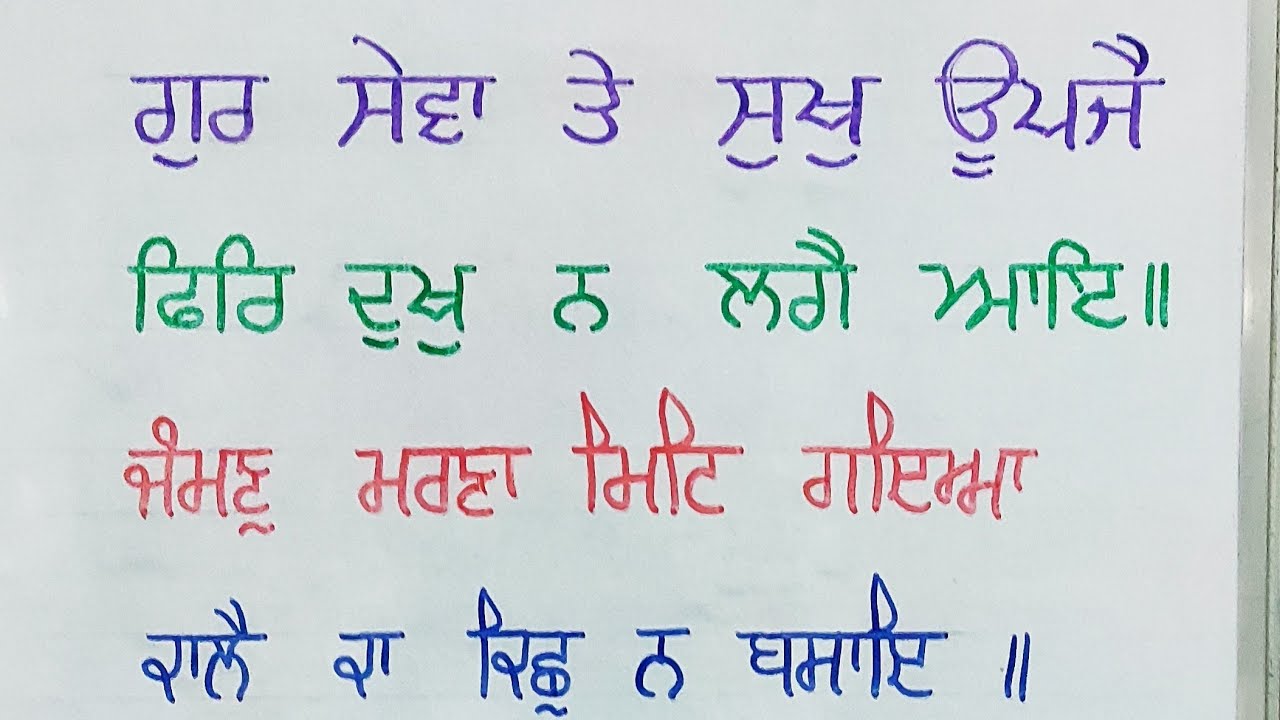 ਗੁਰ ਸੇਵਾ ਤੇ ਸੁਖੁ ਊਪਜੈ
ਫਿਰਿ ਦੁਖੁ ਨ ਲਗੈ ਆਇ॥
ਜੰਮਣੁ ਮਰਣਾ ਮਿਟਿ ਗਇਆ
ਕਾਲੈ ਕਾ ਕਿਛੁ ਨ ਬਸਾਇ ॥